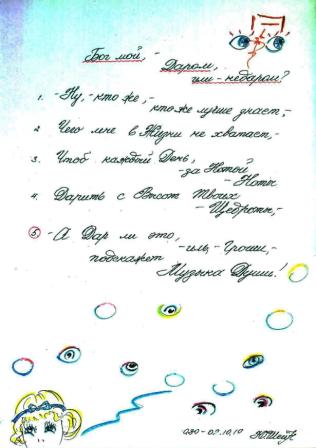 Бог мой, -
Даром,
или - недаром?
1. - Ну, - кто же, -
кто же лучше знает, -
2 Чего мне в Жизни не хватает, -
3. Чтоб каждый День,
- за Нотой
- Ноты
4. Дарить с Высот Твоих
- Щедроты, -
5 - А Дар ли это,
- иль, - Гроши, -
подскажет
Музыка Души!